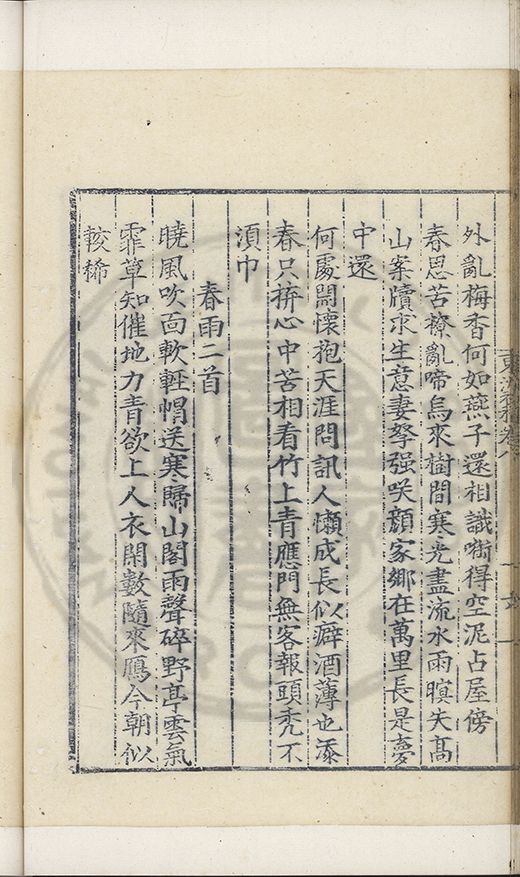 外亂梅香何如燕子還相識啣得空泥占屋傍
春思苦撩亂啼烏來樹間寒光盡流水雨暝失髙
山案牘求生意妻孥强咲顔家鄉在萬里長是夣
中還
何處開懷抱天涯問訊人懶成長似癖酒薄也添
春只拚心中苦相看竹上青應門無客報頭秃不
湏巾
春雨二首
曉風吹面軟輕㡌送寒歸山閣雨聲碎野亭雲氣
霏草知催地力青欲上人衣閑數隨來鴈今朝似
較稀